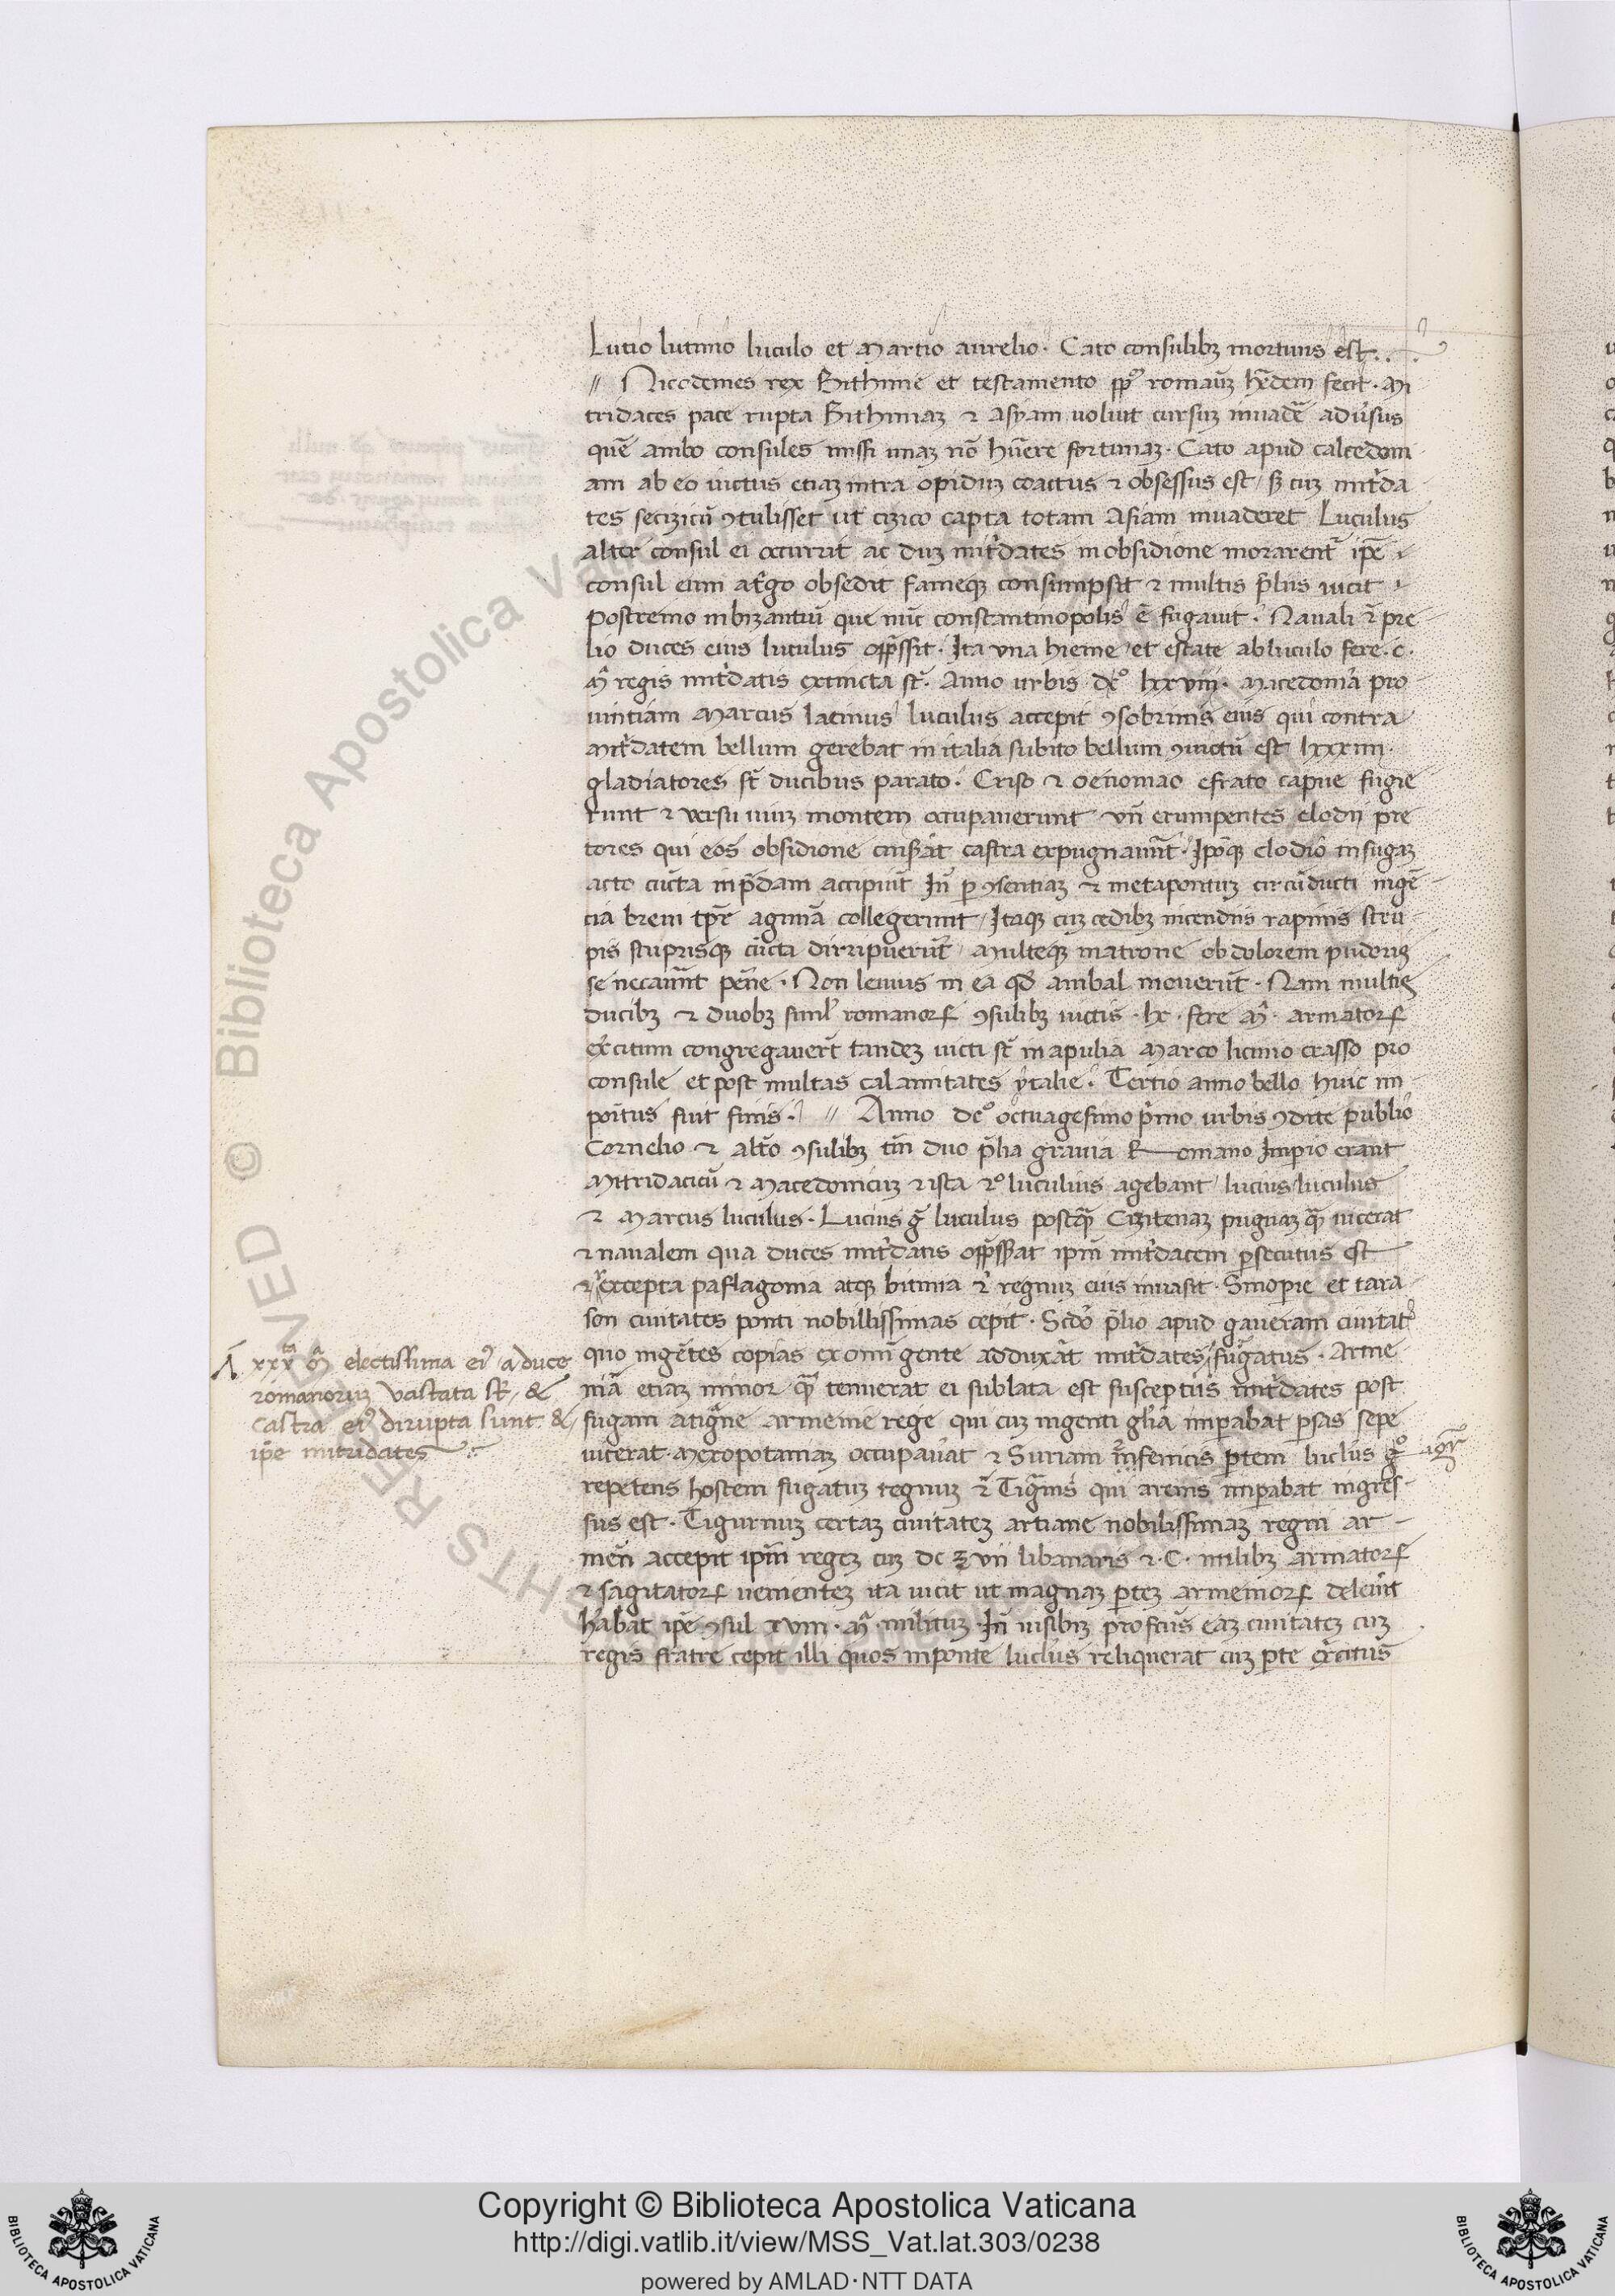 Lutio lutinio luculo et Martio aurelio. Cato consulibꝫ mortuus est..
// Nicodemes rex Bithinie et testamento ppͦ romanuꝫ hẽdem fecit. Mi
tridates pace rupta Bithiniaꝫ ⁊ Asyam uoluit cursuꝫ inuadẽ adu̾sus
quẽ ambo consules missi unaꝫ nõ hũere fortunaꝫ. Cato apud calcedoni
am ab eo uictus etiaꝫ intra opiduꝫ coactus ⁊ obsessus est / sꝫ cuꝫ mit̾da
tes secizicũ ꝯtulisset ut cizico capta totam Asiam inuaderet Luculus
alter consul ei occurrit ac duꝫ mit̾dates in obsidione morarent̃ ipẽ
consul eum at̾go obsedit fameqꝫ consumpsit ⁊ multis p̃liis uicit
Postremo inbizantiũ que nũc constantinopolis ẽ fugauit. Nauali ⁊̃ pre
lio duces eius luculus opp̃ssit. Ita una hieme et estate abluculo fere .c.
M̃ regis mit̾datis extincta st̃. Anno urbis dcͦ lxxviii. Macedoniã pro
uintiam Marcus lacinus luculus accepit ꝯsobrinus eius qui contra
mit̾datem bellum gerebat in italia subito bellum ꝯmotũ est lxxxiiii.
gladiatores st̃ ducibus parato. Criso ⁊ oenomao efrato capue fugie
runt ⁊ versu uiuꝫ montem occupauerunt vñ erumpentes clodij pre
tores qui eos obsidione cinx̾at castra expugnauũt. Ipõqꝫ clodio in fugaꝫ
acto cũcta inp̃dam accipiũt Iñ ꝑ ꝯsentiaꝫ ⁊ metapontuꝫ circũducti ingẽ
cia breui tp̃r̃ agminã collegerunt / Itaqꝫ cuꝫ cedibꝫ incendiis rapinis stru
pis stuprisqꝫ cũcti dirripuerũt / Multeqꝫ matrone ob dolorem pudoris
se necauũt pene. Non leuius in ea qđ anibal mouerũt. Nam multis
ducibꝫ ⁊ duobꝫ simĺ romanoꝝ ꝯsulibꝫ uictis .lx. fere M̃. armatoꝝ
ex̾citum congregauer̃t tandeꝫ uicti st̃ in apulia Marco licinio crasso pro
consule et post multas calamitates ytalie. Tertio anno bello huic im
poitus fuit finis. // Anno dcͦ octuagesimo p̾mo urbis ꝯdite publio
Cornelio ⁊ alt̾o ꝯsulibꝫ tm̃ duo p̃lia grauia Romano Imperio erant
Mitridacicũ ⁊ Macedonicuꝫ ⁊ ista ⁊ͦ luculius agebant / lucius luculus
⁊ Marcus luculus. Lucius g̃ luculus postq̃ꝫ Cizitenaꝫ pugnaꝫ q̃ uicerat
⁊ naualem qua duces mit̾datis opp̃ss̾at ipm̃ mit̾datem ꝑsecutus est
⁊ excepta paflagonia atqꝫ bitinia ⁊̃ regnuꝫ eius inuasit. Sinopie et tara
son ciuitates ponti nobillissimas cepit. Scđo p̃lio apud gaueram ciuitatẽ
quo ingẽtes copias exomi gente addux̾at mit̾dates fugatus. Arme
niã etiaꝫ minor q̃ꝫ tenuerat ei sublata est susceptus mit̾dates post
fugam atig̃ne armenie rege qui cuꝫ ingenti gl̃ia imperabat ꝑsas sepe
uicerat Mexopotamiaꝫ occupau̾at ⁊ Suriam ⁊ infenicis ꝑtem luclus gͦ
repetens hostem fugatuꝫ regnuꝫ ⁊̃ Tig̃nis qui arenis imperabat ingres
sus est. Tigurniuꝫ certaꝫ ciuitateꝫ artiane nobilissimaꝫ regni ar
meñ accepit ipm̃ regeꝫ cuꝫ dc ꝫ vii libanaris ⁊ .C. milibꝫ armatoꝝ
⁊ sagitatoꝝ uenienteꝫ ita uicit ut magnaꝫ ꝑteꝫ armenioꝝ deleuit
hab̾at ipẽ ꝯsul xviii. M̃. milituꝫ. Iñ nisibiꝫ profctũs eaꝫ ciuitateꝫ cuꝫ
regis fratre cepit illi quos inponte luclus reliquerat cuꝫ ꝑte ex̾citus
xxxᵗᵃ M̃ electissima eiꝰ aduce
romanoruꝫ vastata st̃ / &
castra eiꝰ dirupta sunt &
ipẽ mitridates
igr̃
RIGHTS RESERVED © Biblioteca Apostolica Vaticana
Copyright © Biblioteca Apostolica Vaticana
http://digi.vatlib.it/view/MSS_Vat.lat.303/0238
powered by AMLAD·NTT DATA
BIBLIOTECA APOSTOLICA VATICANA
BIBLIOTECA APOSTOLICA VATICANA